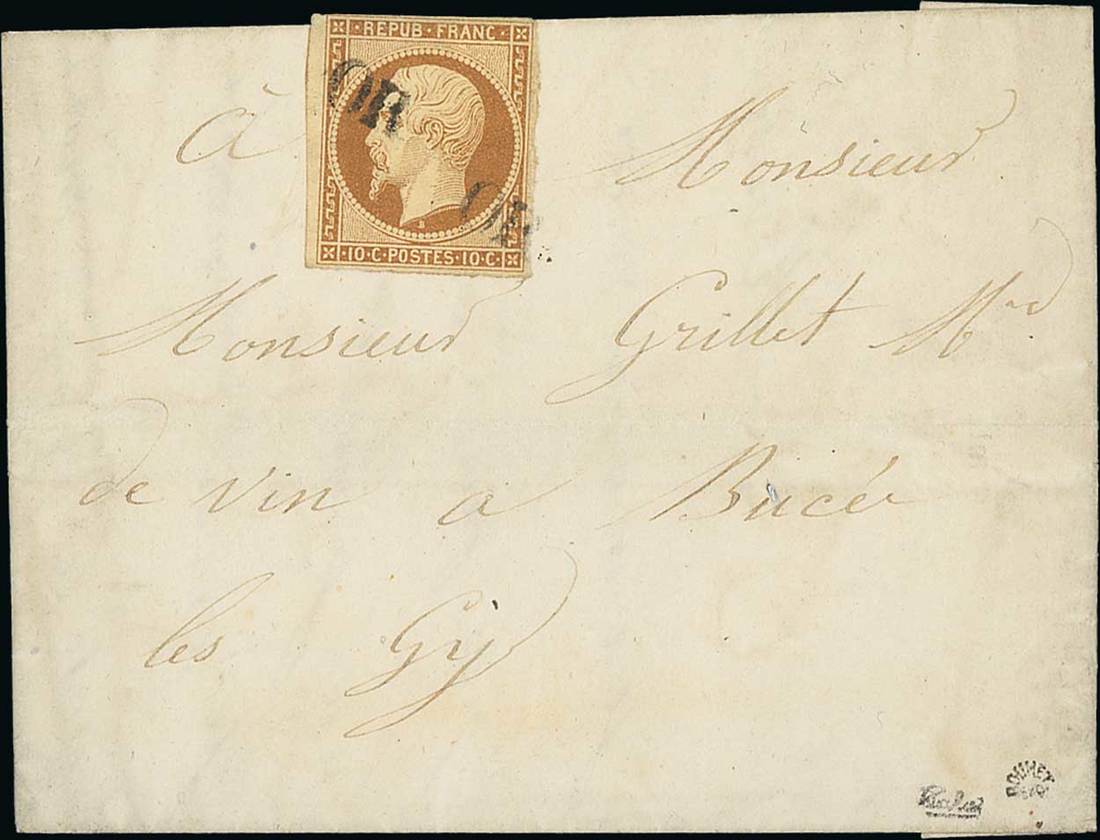 REPUB · FRANC ·
OR
OR
· 10 · C · POSTES · 10 · C ·
à Monsieur
Monsieur Grillet Md
de vin a Bucée
les Gy